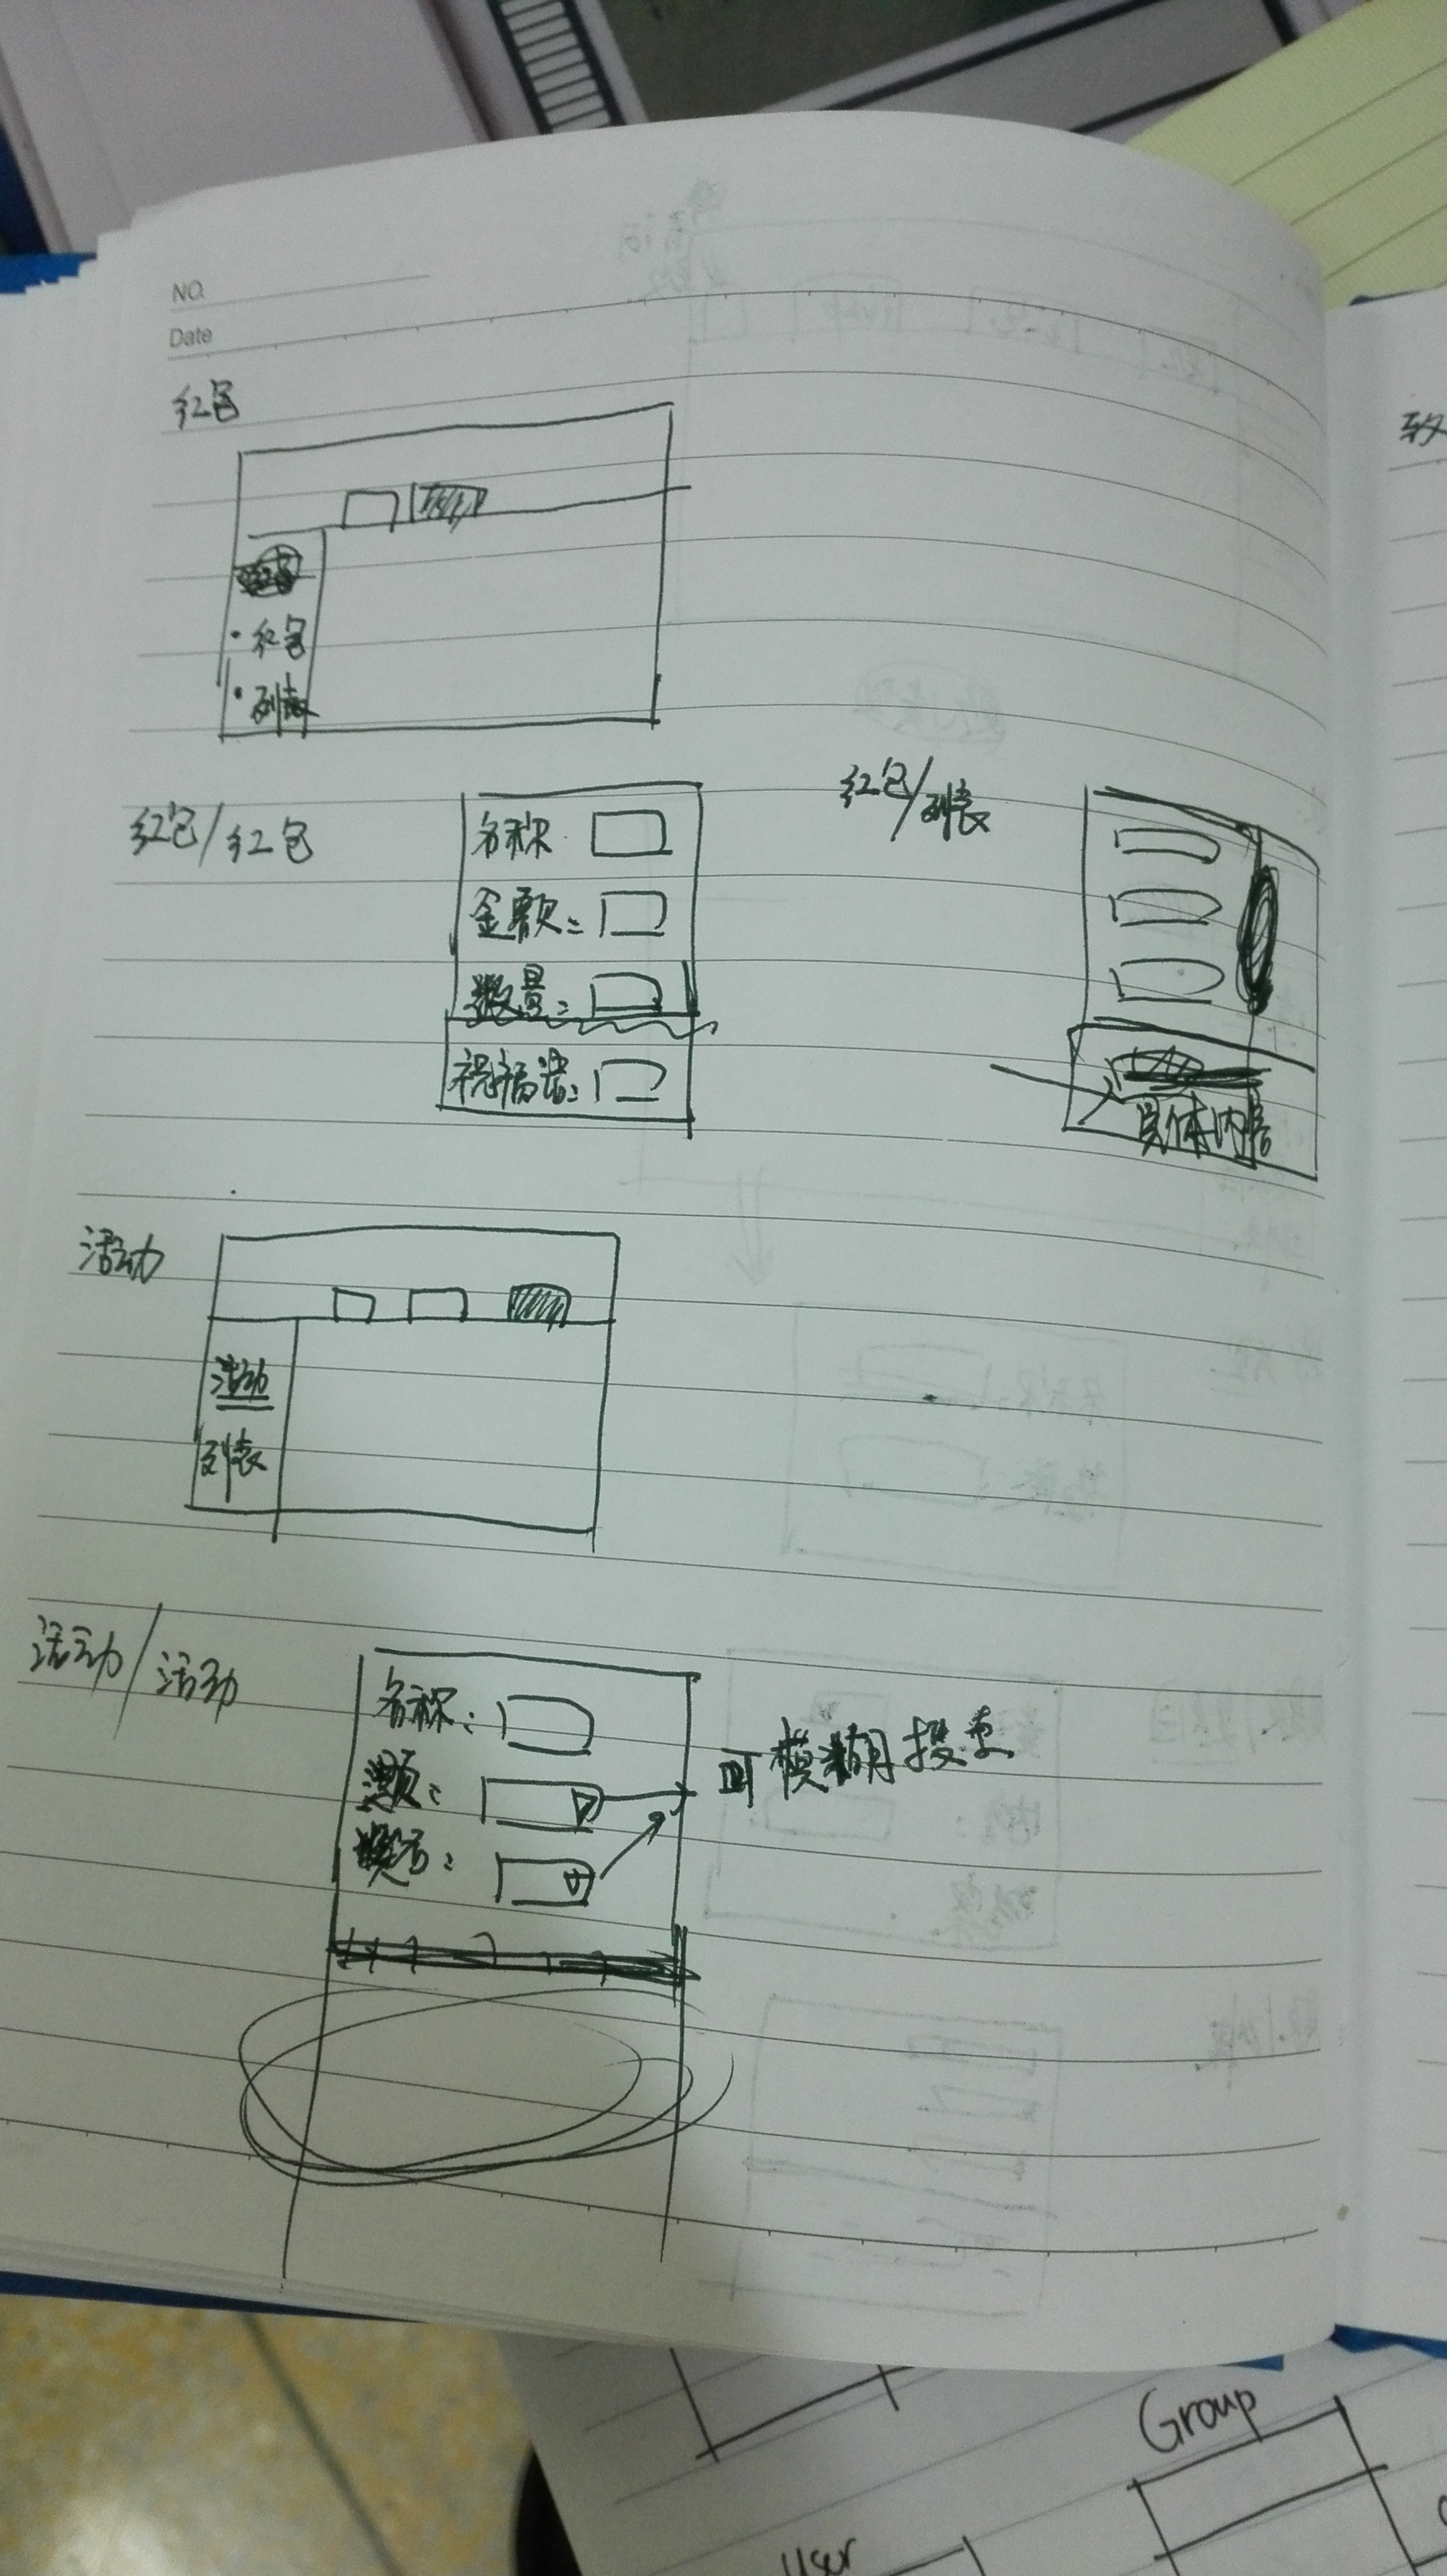 NO.
Date
红包
• 红包
• 列表
红包/红包
名称
金额:
数量:
祝福语:
红包/列表
具体内容
活动
活动
列表
活动/活动
名称:
可模糊搜索
致
Group
User